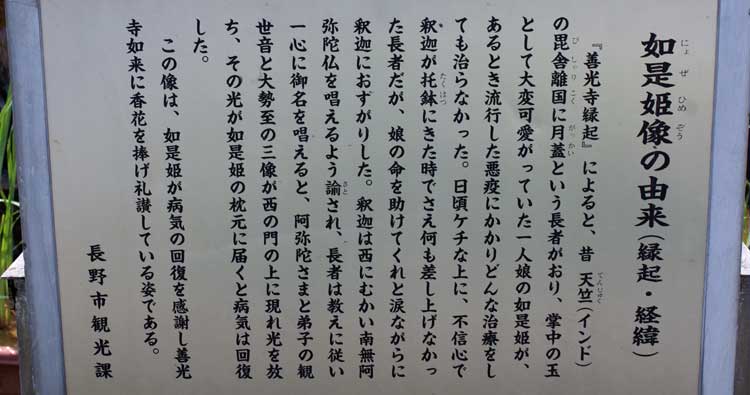 如是姫像の由来(縁起・経緯)
『善光寺縁起』によると、昔 天竺(インド)
の毘舎離国に月蓋という長者がおり、掌中の玉
として大変可愛がっていた一人娘の如是姫が、
あるとき流行した悪疫にかかりどんな治療をし
ても治らなかった。日頃ケチな上に、不信心で
釈迦が托鉢にきた時でさえ何も差し上げなかっ
た長者だが、娘の命を助けてくれと涙ながらに
釈迦におすがりした。釈迦は西にむかい南無阿
弥陀仏を唱えるよう諭され、長者は教えに従い
一心に御名を唱えると、阿弥陀さまと弟子の観
世音と大勢至の三像が西の門の上に現れ光を放
ち、その光が如是姫の枕元に届くと病気は回復
した。
この像は、如是姫が病気の回復を感謝し善光
寺如来に香花を捧げ礼讃している姿である。
長野市観光課